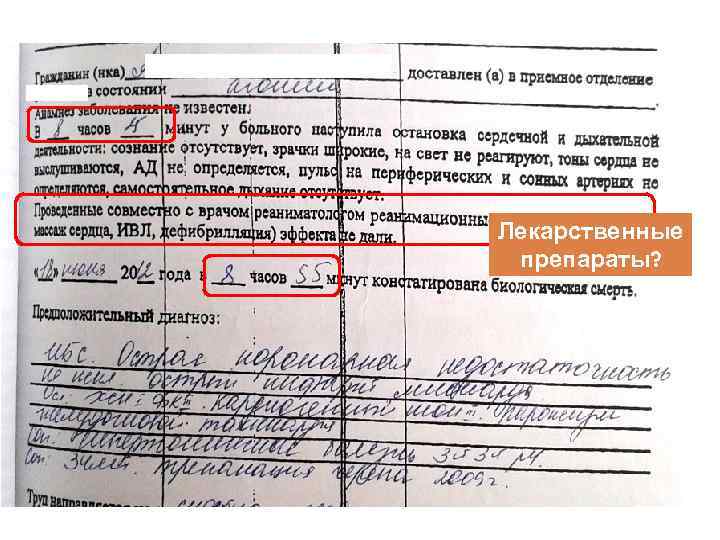 Гражданин (нка) доставлен (а) в приемное отделение
в состоянии агонии
Анамнез заболевания не известен.
В 8 часов 45 минут у больного наступила остановка сердечной и дыхательной
деятельности: сознание отсутствует, зрачки широкие, на свет не реагируют, тоны сердца не
выслушиваются, АД не определяется, пульс на периферических и сонных артериях не
определяются, самостоятельное дыхание отсутствует.
Проведенные совместно с врачом реаниматологом реанимационные
массаж сердца, ИВЛ, дефибрилляция) эффекта не дали.
Лекарственные
препараты?
«18» июня 2012 года в 8 часов 55 минут констатирована биологическая смерть.
Предположительный диагноз:
ИБС. Острая коронарная недостаточность
острый инфаркт миокарда
Осл. кардиогенный шок. Пароксизм
желудочковой тахикардии
Соп. Гипертоническая болезнь 3 ст
Соп. трепанация черепа 2009г.
Труп направляется